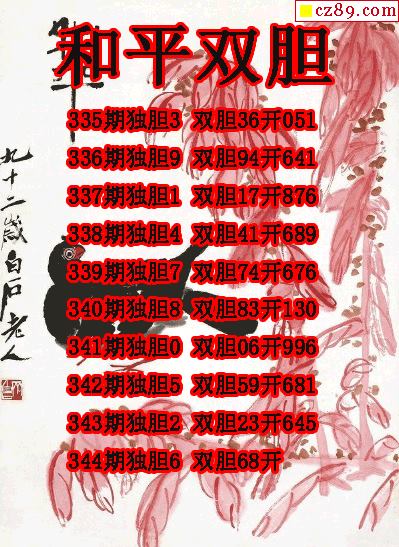 cz89.com
和平双胆
335期独胆3 双胆36开051
336期独胆9 双胆94开641
337期独胆1 双胆17开876
338期独胆4 双胆41开689
339期独胆7 双胆74开676
340期独胆8 双胆83开130
341期独胆0 双胆06开996
342期独胆5 双胆59开681
343期独胆2 双胆23开645
344期独胆6 双胆68开
九十二岁白石老人